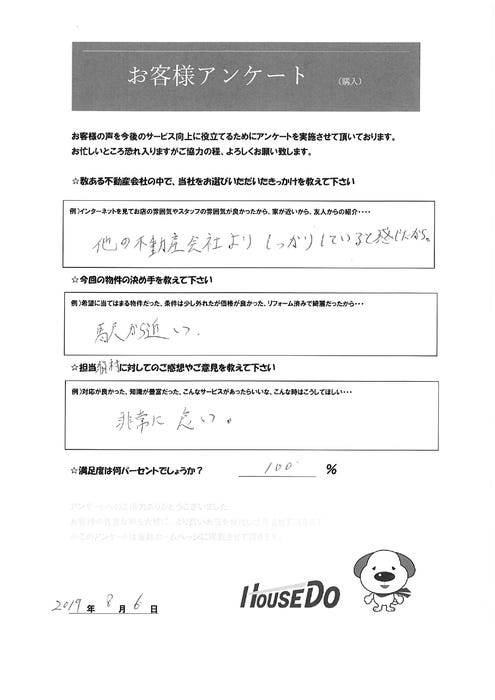 お客様アンケート (購入)
お客様の声を今後のサービス向上に役立てるためにアンケートを実施させて頂いております。
お忙しいところ恐れ入りますがご協力の程、よろしくお願い致します。
☆数ある不動産会社の中で、当社をお選びいただいたきっかけを教えて下さい
例)インターネットを見てお店の雰囲気やスタッフの雰囲気が良かったから、家が近いから、友人からの紹介・・・・
他の不動産会社よりしっかりしていると感じたから。
☆今回の物件の決め手を教えて下さい
例)希望に当てはまる物件だった、条件は少し外れたが価格が良かった、リフォーム済みで綺麗だったから・・・
駅から近い。
☆担当 村に対してのご感想やご意見を教えて下さい
例)対応が良かった、知識が豊富だった、こんなサービスがあったらいいな、こんな時はこうしてほしい・・・
非常に良い。
☆満足度は何パーセントでしょうか? 100 %
アンケートへのご協力ありがとうございました
お客様の貴重な声を大切に、より良いお店を
※このアンケートは当社ホームページに掲載させて頂きます。
HOUSEDO
2019年 8月 6日